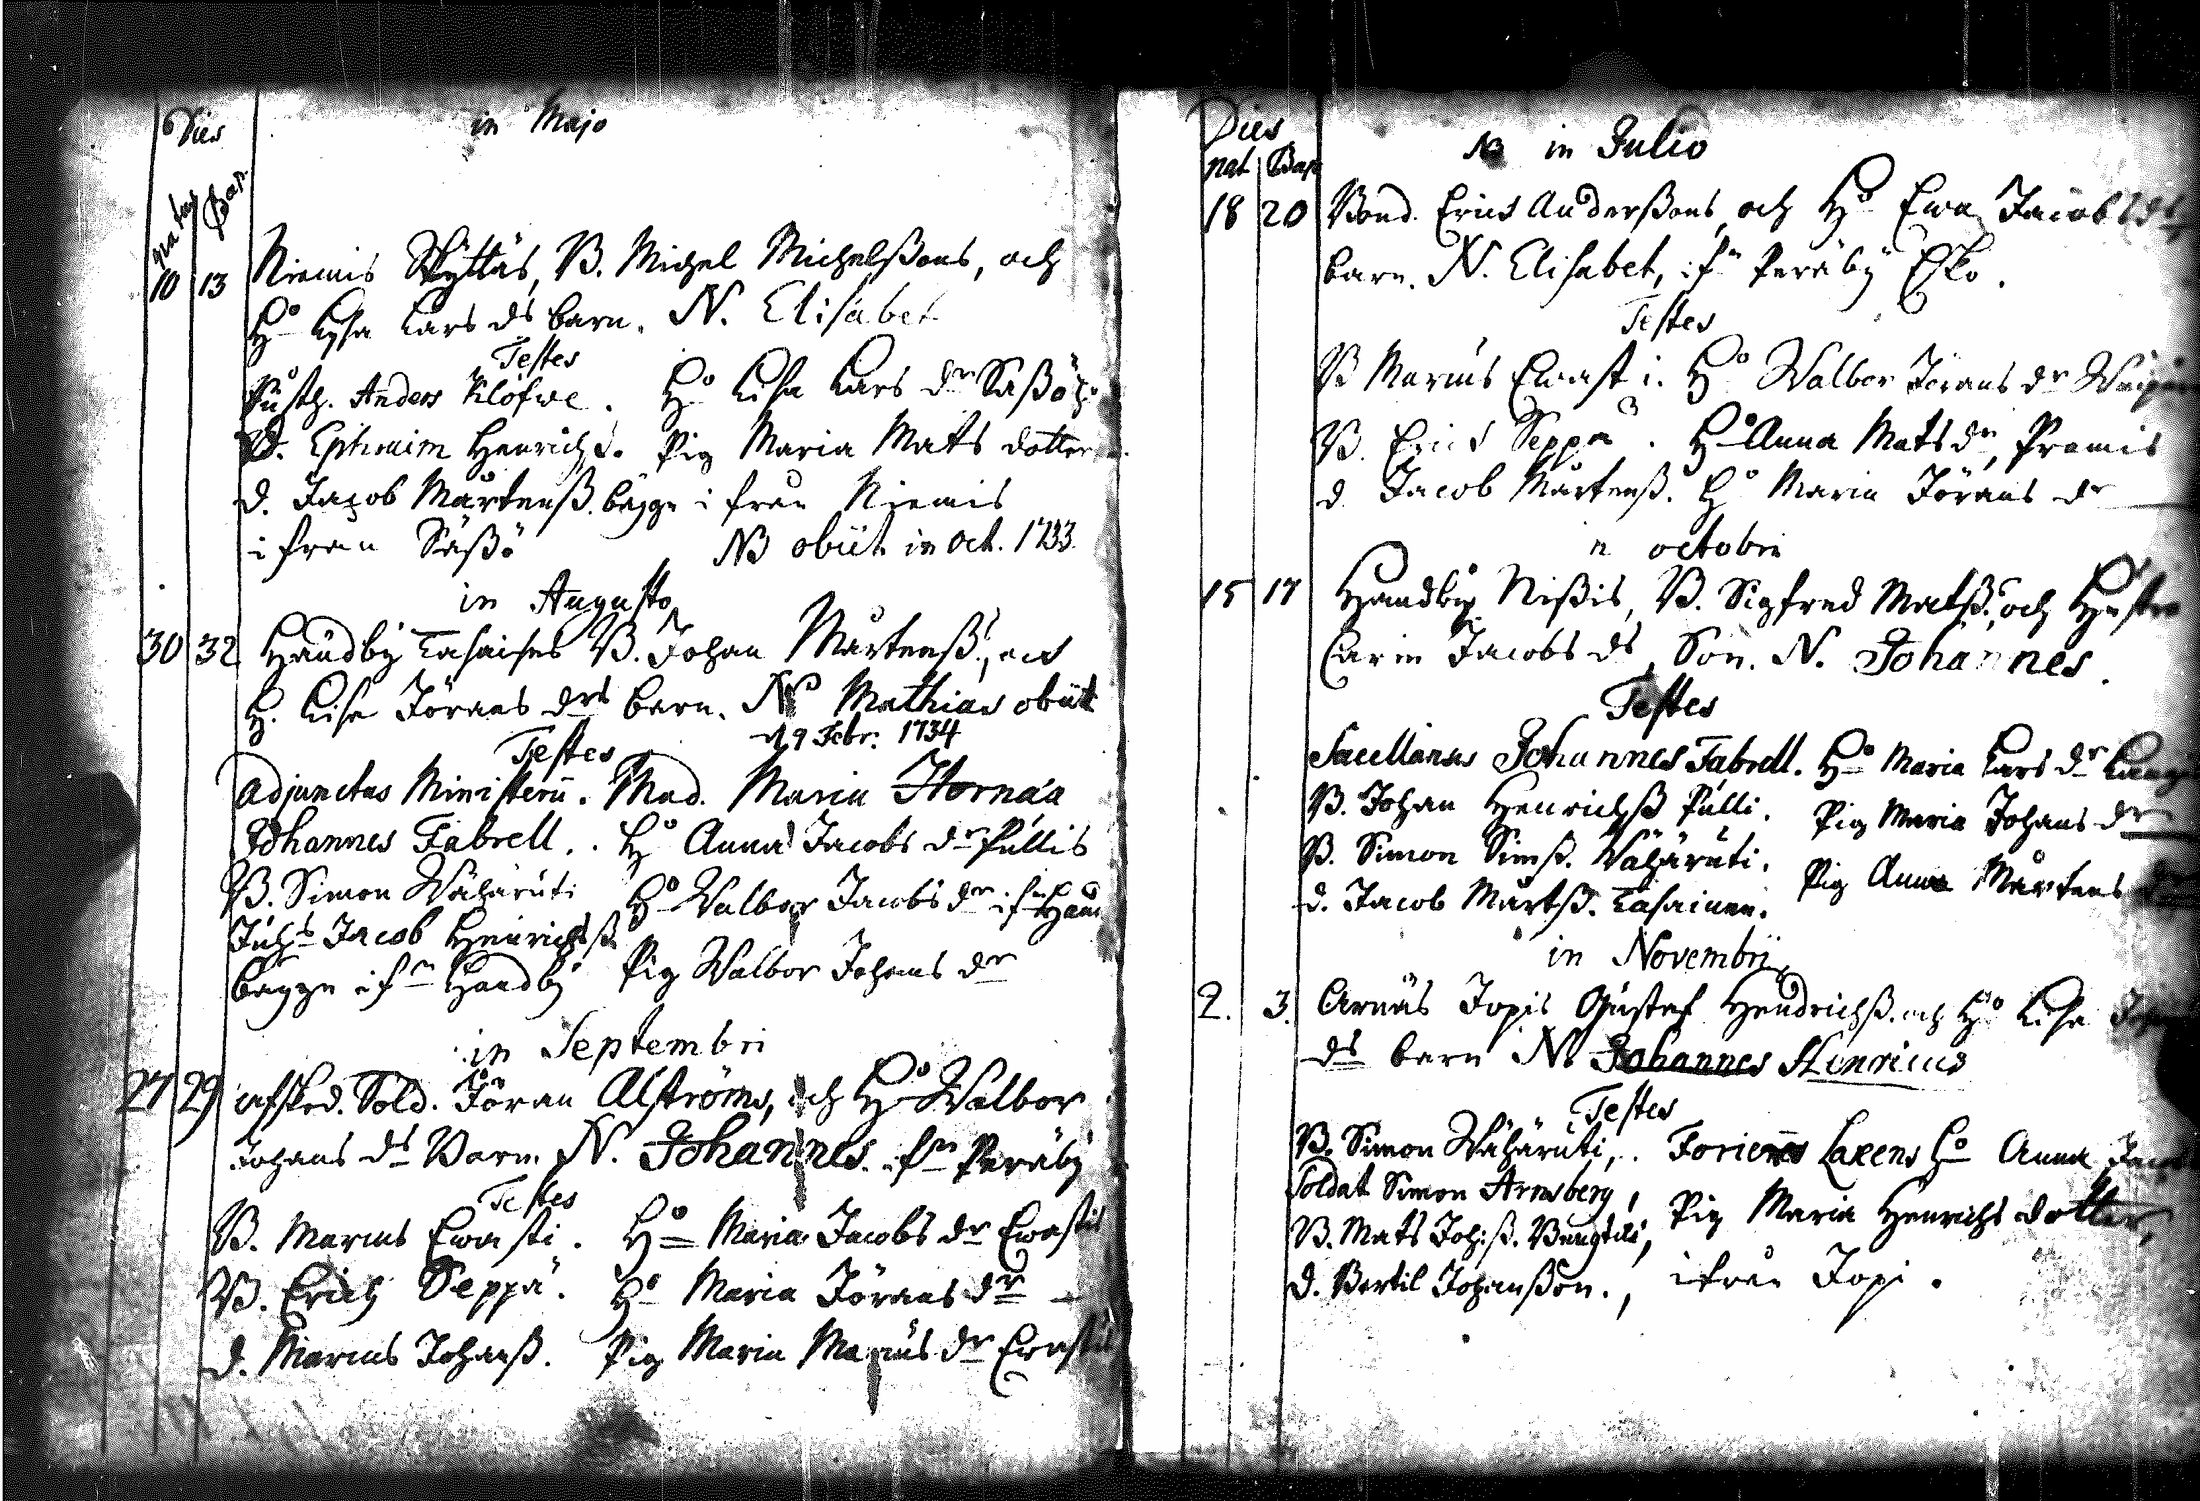 Dies
in Majo
natus Bap.
10 13 Niemis Skÿttäs, B. Michel Michelßons, och
Ho Lisa Lars ds barn. N. Elisabet
Testes
Rusth. Anders Klöfwe. Ho Lisa Lars dr Saßö
D. Ephraim Henrichs. Pig Maria Mats dotter
d. Jacob Mårtenß. bägge ifrån Niemis
ifrån Säßö NB obiit in oct. 1733.
in Augusto
30 32 Haudbÿ Tasaises B. Johan Mårtenß.,
H. Lisa Jörans drs barn. N. Mathias obiit
d 9 Febr. 1734
Testes
Adjunctus Ministerii. Mad. Maria
Johannes Fabrell.. Ho Anna Jacobs dr Pullis
B. Simon Wähäruti Ho Walbor Jacobs dr ifn
Jacob Heinrichß
bägge ifn Haudbÿ Pig Walbor Johans dr
in Septembri
27 29 afsked. Sold. Jöran Alströms, och Ho Walbor
Johans ds Barn. N. Johannes. ifn Peräbÿ
Testes
B. Marcus Ewasti. Ho Maria Jacobs dr Ewastis
B. Erich Seppä. Ho Maria Jörans dr
d. Marcus Johanß. Pig Maria Marcus dr Ewastis
Dies
nat Bap
NB in Julio
18 20 Bond. Erics Anderßons, och Ho Ewa Jacobs ds
barn. N. Elisabet, ifn Peräbÿ Esko.
Testes
B Marcus Ewast i. Ho Walbor Jörans dr
B. Erich Seppä. Ho Anna Mats dr, Pramis
d Jacob Mårtenß. Ho Maria Jörans dr
in octobri
15 17 Haudbÿ Nißis, B. Sigfred Matß. och Hustru
Carin Jacobs ds, Son. N. Johannes.
Testes
Sacellanus Johannes Fabrell. Ho Maria Lars dr
B. Johan Henrichß Pulli. Pig Maria Johans dr
B. Simon Simß. Wähäruti. Pig Anna Mårtens
d. Jacob Mårtß. Tasainen.
in Novembri
2. 3. Arnäs Jopis Gustaf Hendrichß. och Ho Lisa
ds barn N. Johannes Henricus
Testes
B. Simon Wähäruti,. Laxens Ho Anna
Soldat Simon Armsberg, Pig Maria Henrichs dotter,
B. Mats Joh:ß. Bengtils,
d. Bertil Johanßon., ifrån Jopi.